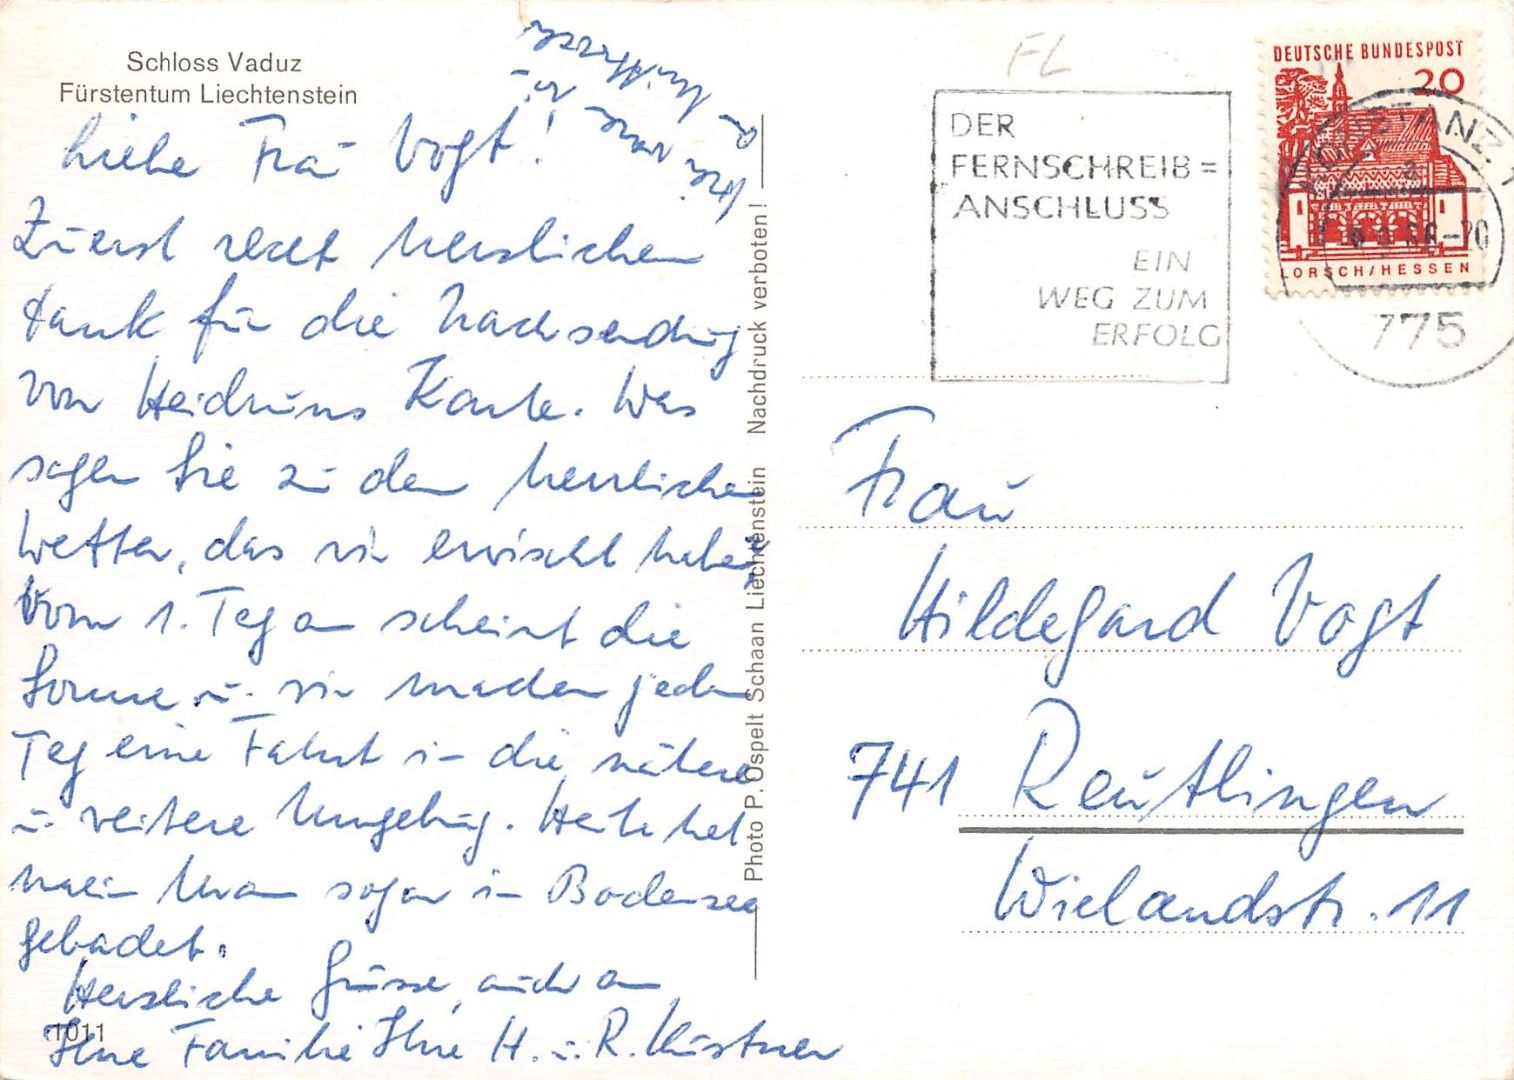 Schloss Vaduz
Fürstentum Liechtenstein
Liebe Frau Vogt!
Zuerst recht herzlichen
Dank für die Nachsendung
von Heidruns Karte. Was
sagen Sie zu dem herrlichen
Wetter, das wir erwischt haben,
Vom 1. Tag an scheint die
Sonne u. wir machen jeden
Tag eine Fahrt in die nähere
u. weitere Umgebung. Heute hat
mein Mann sogar im Bodensee
gebadet.
Herzliche Grüsse, auch an
Ihre Familie Ihre H. u. R. Küstner
1011
Photo P. Ospelt Schaan Liechtenstein Nachdruck verboten!
FL
DER
FERNSCHREIB=
ANSCHLUSS
EIN
WEG ZUM
ERFOLG
DEUTSCHE BUNDESPOST
20
LORSCH/HESSEN
KONSTANZ 1
a
66-20
775
Frau
Hildegard Vogt
741 Reutlingen
Wielandstr. 11